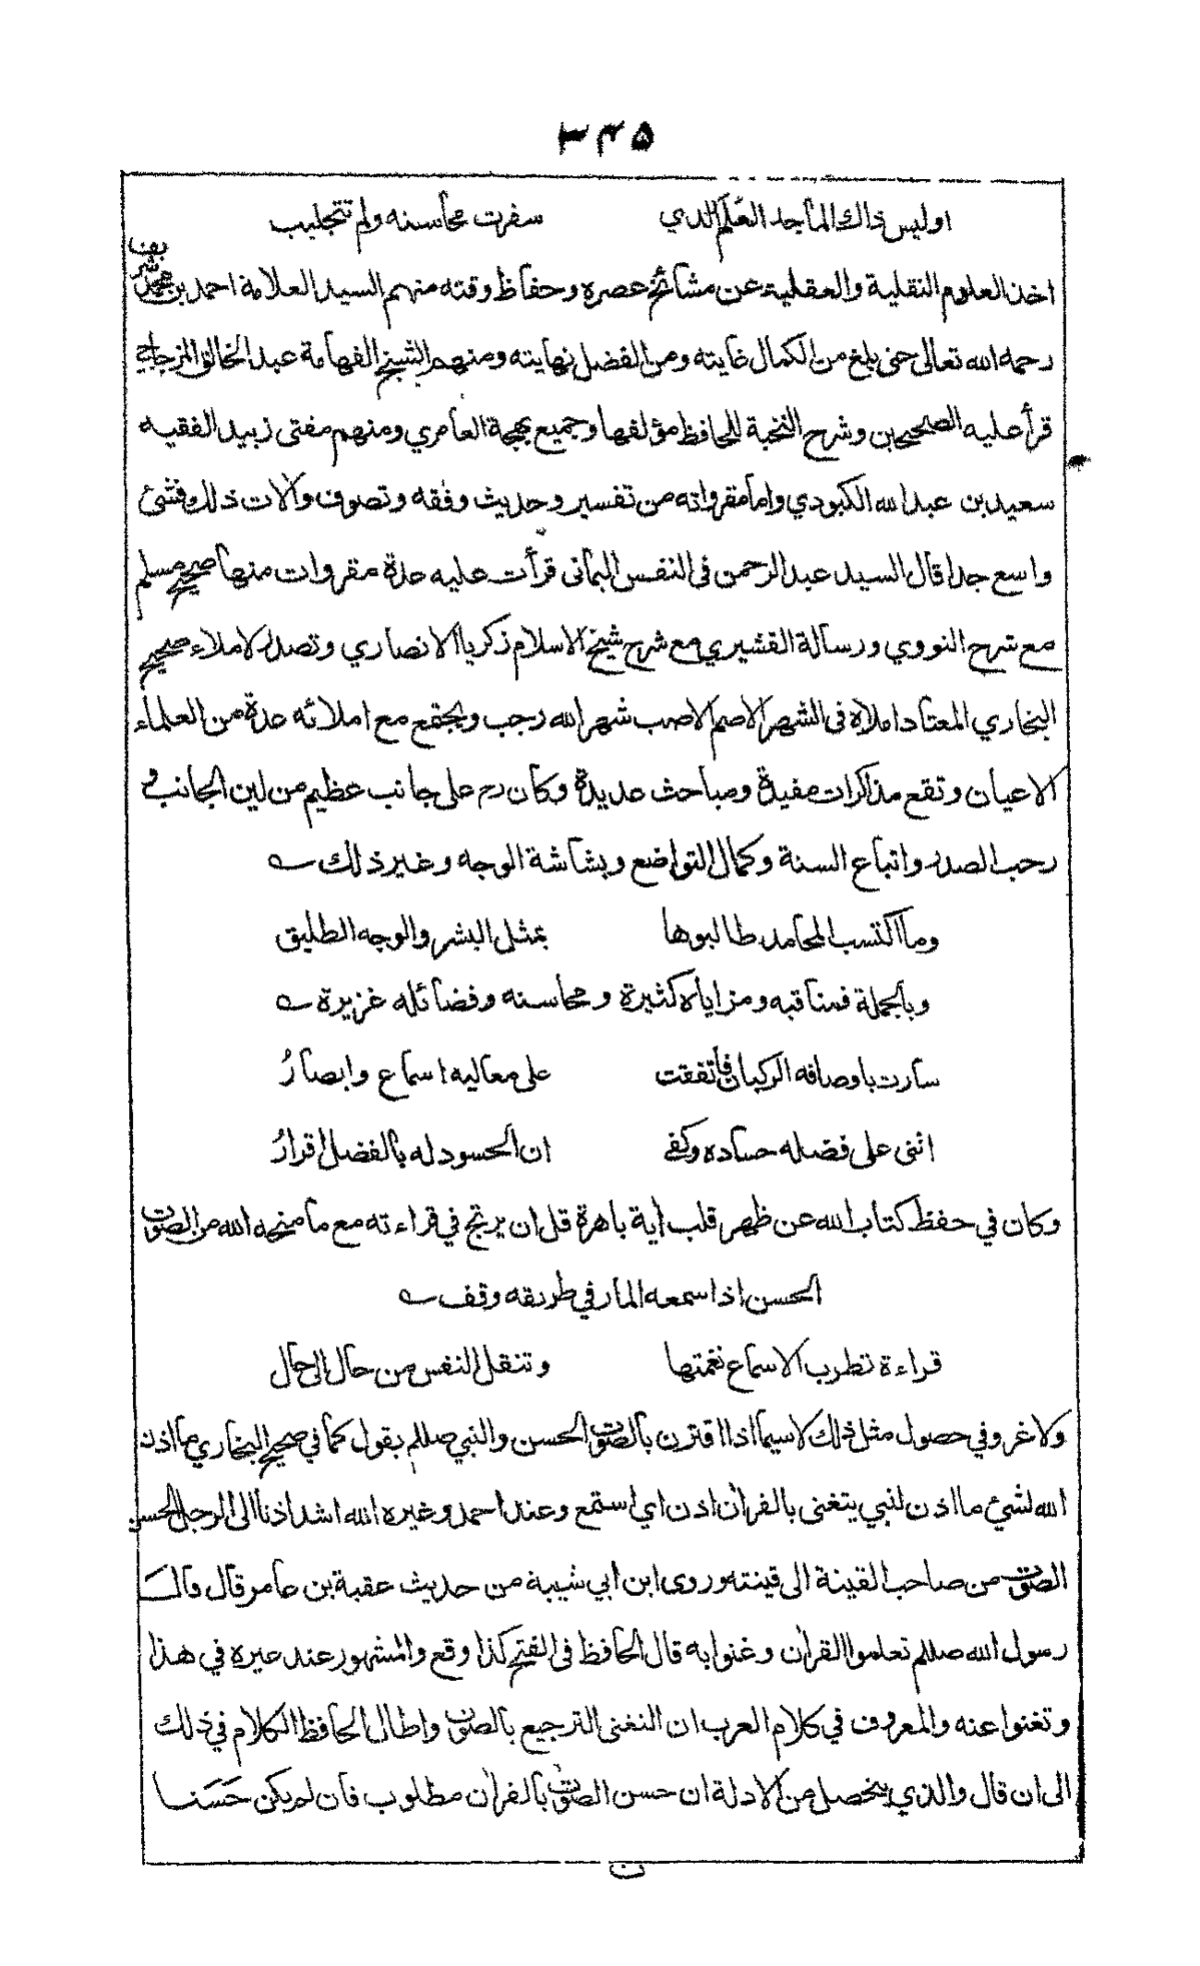 ٣٤٥
اوليس ذاك الماجد العَلَم الذي سفرت محاسنه ولم تتجلبب
اخذ العلوم النقلية والعقلية عن مشائخ عصره وحفاظ وقته منهم السيد العلامة احمد بن محمد شريف
رحمه الله تعالى حتى بلغ من الكمال غايته ومن الفضل نهايته ومنهم الشيخ الفهامة عبد الخالق المزجاجي
قرأ عليه الصحيحين وشرح النخبة للحافظ مؤلفها وجميع بهجة العامري ومنهم مفتى زبيد الفقيه
سعيد بن عبد الله الكبودي واما مقرواته من تفسير وحديث وفقه وتصوف والات ذلك فشئ
واسع جدا قال السيد عبد الرحمن في النفس اليماني قرأت عليه عدة مقروات منها صحيح مسلم
مع شرح النووي ورسالة القشيري مع شرح شيخ الاسلام زكريا الانصاري وتصدر لاملاء صحيح
البخاري المعتاد املاه في الشهر الاصم الاصب شهر الله رجب ويجتمع مع املائه عدة من العلماء
الاعيان وتقع مذاكرات مفيدة ومباحث عديدة وكان رح على جانب عظيم من لين الجانب و
رحب الصدر واتباع السنة وكمال التواضع وبشاشة الوجه وغير ذلك ؎
وما اكتسب المحامد طالبوها بمثل البشر والوجه الطليق
وبالجملة فمناقبه ومزاياه كثيرة ومحاسنه وفضائله غزيرة ؎
سارت باوصافه الركبان فاتفقت على معاليه اسماع وابصارُ
اثنى على فضله حساده وكفى ان الحسود له بالفضل اقرارُ
وكان في حفظ كتاب الله عن ظهر قلب أية باهرة قل ان يرتج في قراءته مع ما منحه الله من الصوت
الحسن اذا سمعه المار في طريقه وقف ؎
قراءة تطرب الاسماع نغمتها وتنقل النفس من حال الى حال
ولا غرو في حصول مثل ذلك لا سيما اذا اقترن بالصوت الحسن والنبي صللم يقول كما في صحيح البخاري ما اذن
الله لشئ ما اذن لنبي يتغنى بالقرأن اذن اي استمع وعند احمد وغيره الله اشد اذنا الى الرجل الحسن
الصوت من صاحب القينة الى قينته وروى ابن ابي شيبة من حديث عقبة بن عامر قال قالَ
رسول الله صللم تعلموا القرأن وغنوا به قال الحافظ في الفتح كذا وقع والمشهور عند غيره في هذا
وتغنوا عنه والمعروف في كلام العرب ان التغنى الترجيع بالصوت واطال الحافظ الكلام في ذلك
الى ان قال والذي يتحصل من الادلة ان حسن الصوت بالقرأن مطلوب فان لم يكن حَسَنا
ن